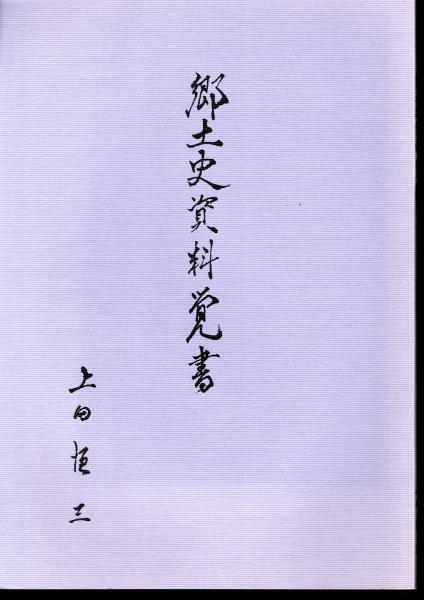 郷土史資料覚書
上田恒三